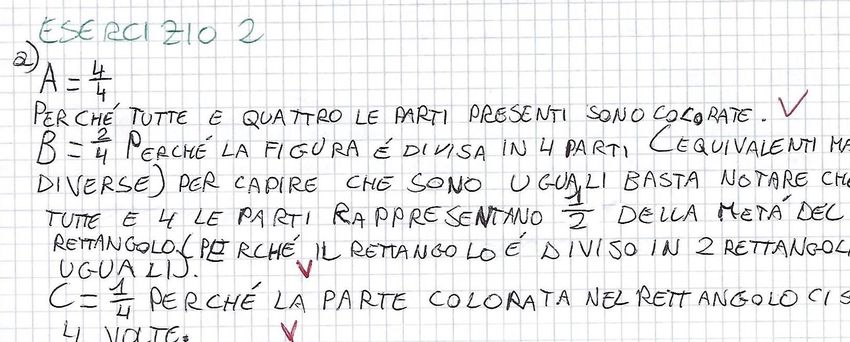 ESERCIZIO 2
a) A = 4/4
PERCHÉ TUTTE E QUATTRO LE PARTI PRESENTI SONO COLORATE.
B = 2/4 PERCHÉ LA FIGURA É DIVISA IN 4 PARTI (EQUIVALENTI MA
DIVERSE) PER CAPIRE CHE SONO UGUALI BASTA NOTARE CHE
TUTTE E 4 LE PARTI RAPPRESENTANO 1/2 DELLA METÁ DEL
RETTANGOLO (PERCHÉ IL RETTANGOLO É DIVISO IN 2 RETTANGOLI
UGUALI).
C = 1/4 PERCHÉ LA PARTE COLORATA NEL RETTANGOLO CI S
4 VOLTE.